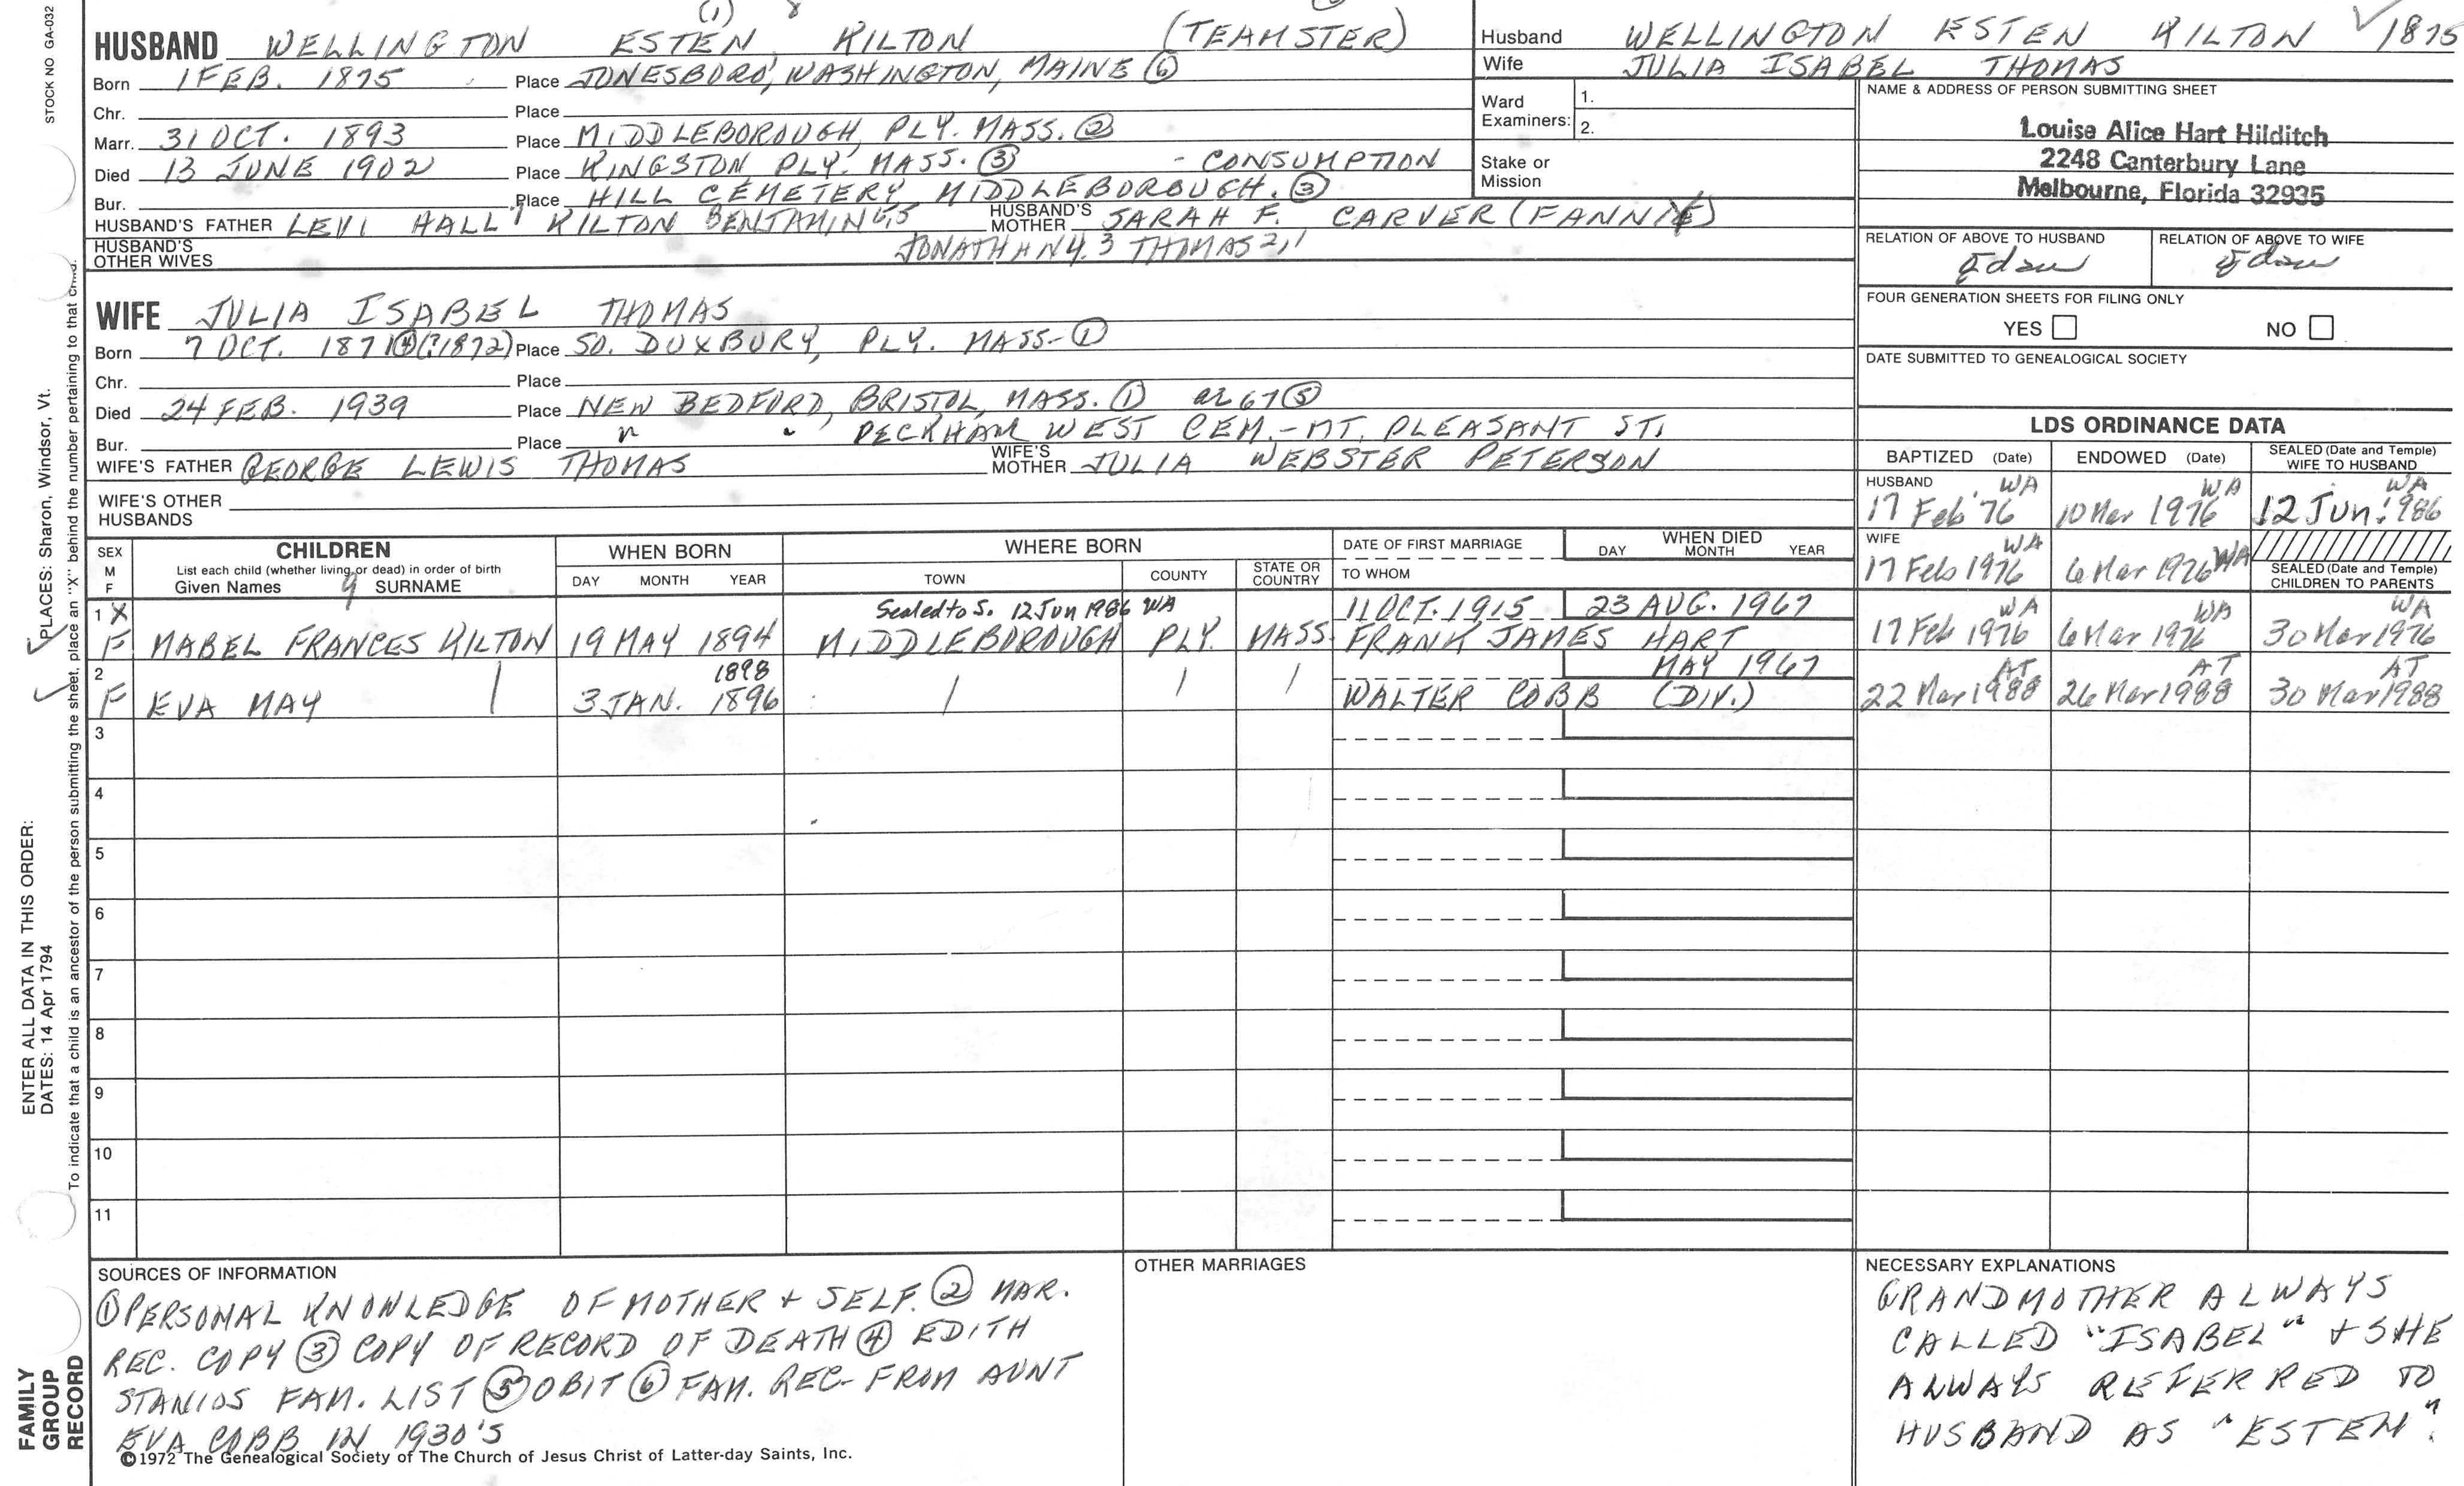 STOCK NO. GA-032
(1)
HUSBAND WELLINGTON ESTEN KILTON (TEAMSTER)
Born 1 FEB. 1875 Place JONESBORO, WASHINGTON, MAINE (6)
Chr. Place
Marr. 31 OCT. 1893 Place MIDDLEBOROUGH, PLY. MASS. (2)
Died 13 JUNE 1902 Place KINGSTON PLY. MASS. (3) - CONSUMPTION
Bur. Place HILL CEMETERY, MIDDLEBOROUGH. (3)
HUSBAND'S FATHER LEVI HALL KILTON BENJAMIN 6,5 HUSBAND'S MOTHER SARAH F. CARVER (FANNIE)
HUSBAND'S OTHER WIVES JONATHAN 4,3 THOMAS 2,1
Husband WELLINGTON ESTEN KILTON 1875
Wife JULIA ISABEL THOMAS
Ward Examiners: 1.
2.
Stake or Mission
NAME & ADDRESS OF PERSON SUBMITTING SHEET
Louise Alice Hart Hilditch
2248 Canterbury Lane
Melbourne, Florida 32935
RELATION OF ABOVE TO HUSBAND RELATION OF ABOVE TO WIFE
g dau g dau
FOUR GENERATION SHEETS FOR FILING ONLY
YES NO
DATE SUBMITTED TO GENEALOGICAL SOCIETY
WIFE JULIA ISABEL THOMAS
Born 7 OCT. 1871 (4) (?1872) Place SO. DUXBURY, PLY. MASS- (1)
Chr. Place
Died 24 FEB. 1939 Place NEW BEDFORD, BRISTOL, MASS. (1) ae 67 (5)
Bur. Place " " PECKHAM WEST CEM.-MT. PLEASANT ST.
WIFE'S FATHER GEORGE LEWIS THOMAS WIFE'S MOTHER JULIA WEBSTER PETERSON
WIFE'S OTHER HUSBANDS
LDS ORDINANCE DATA
BAPTIZED (Date) ENDOWED (Date) SEALED (Date and Temple) WIFE TO HUSBAND
HUSBAND WA WA WA
17 Feb '76 10 Mar 1976 12 Jun. 1986
WIFE WA WA
17 Feb 1976 6 Mar 1976
SEALED (Date and Temple) CHILDREN TO PARENTS
SEX M F CHILDREN WHEN BORN WHERE BORN DATE OF FIRST MARRIAGE WHEN DIED
List each child (whether living or dead) in order of birth
Given Names SURNAME DAY MONTH YEAR TOWN COUNTY STATE OR COUNTRY TO WHOM DAY MONTH YEAR
1 X Sealed to S. 12 Jun 1986 WA 11 OCT. 1915 23 AUG. 1967 WA WA WA
F MABEL FRANCES KILTON 19 MAY 1894 MIDDLEBOROUGH PLY. MASS. FRANK JAMES HART 17 Feb 1976 6 Mar 1976 30 Mar 1976
2 1898 MAY 1967 AT AT AT
F EVA MAY 3 JAN. 1896 WALTER COBB (DIV.) 22 Mar 1988 26 Mar 1988 30 Mar 1988
3
4
5
6
7
8
9
10
11
SOURCES OF INFORMATION
(1) PERSONAL KNOWLEDGE OF MOTHER + SELF. (2) MAR.
REC. COPY (3) COPY OF RECORD OF DEATH (4) EDITH
FAM. LIST (5) OBIT (6) FAM. REC- FROM AUNT
EVA COBB IN 1930'S
©1972 The Genealogical Society of The Church of Jesus Christ of Latter-day Saints, Inc.
OTHER MARRIAGES
NECESSARY EXPLANATIONS
GRANDMOTHER ALWAYS
CALLED "ISABEL" + SHE
ALWAYS REFERRED TO
HUSBAND AS "ESTEN".
FAMILY GROUP RECORD
ENTER ALL DATA IN THIS ORDER:
DATES: 14 Apr 1794
PLACES: Sharon, Windsor, Vt.
To indicate that a child is an ancestor of the person submitting the sheet, place an "X" behind the number pertaining to that child.